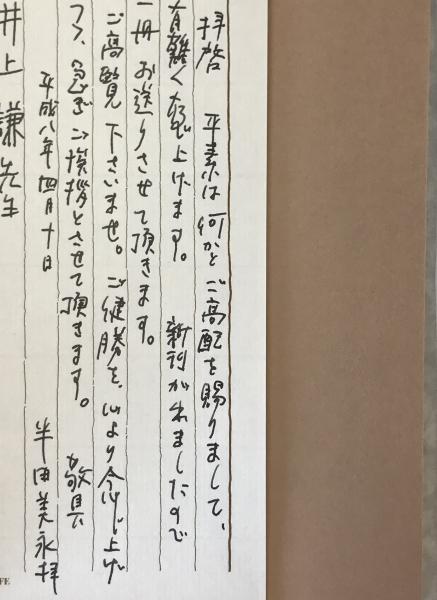 拝啓　平素は何かとご高配を賜りまして、
有難く存じ上げます。　新刊が出ましたので
一冊お送りさせて頂きます。
ご高覧下さいませ。ご健勝を、心より念じ上げ
つつ、急ぎご挨拶とさせて頂きます。　敬具
平成八年四月十日　半田美永拝
井上謙先生
FE